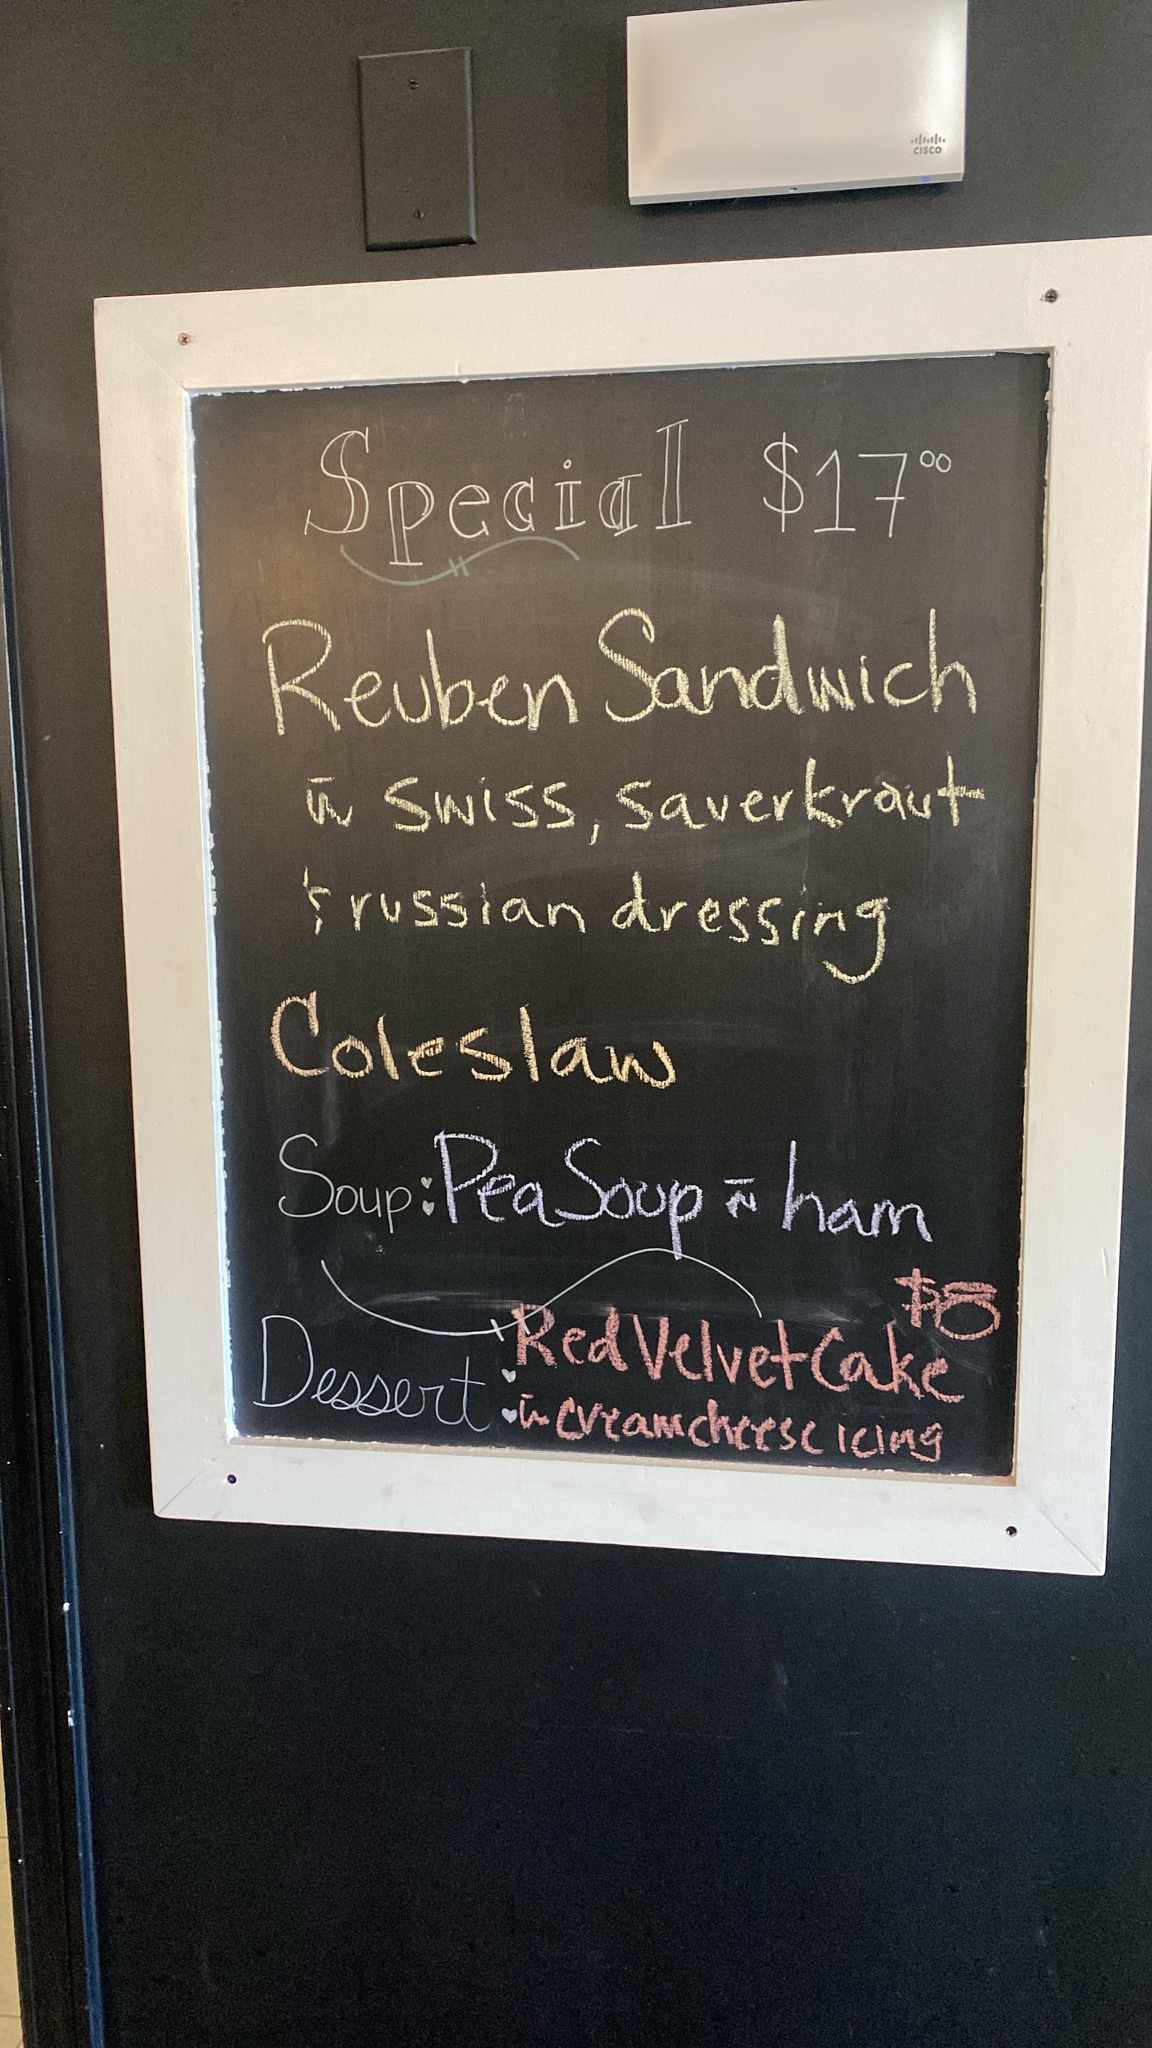 CISCO
Special $17⁰⁰
Reuben Sandwich
w̄ swiss, saverkraut
& russian dressing
Coleslaw
Soup: Pea Soup w̄ ham
$8
Dessert: Red Velvet Cake
w̄ creamcheese icing